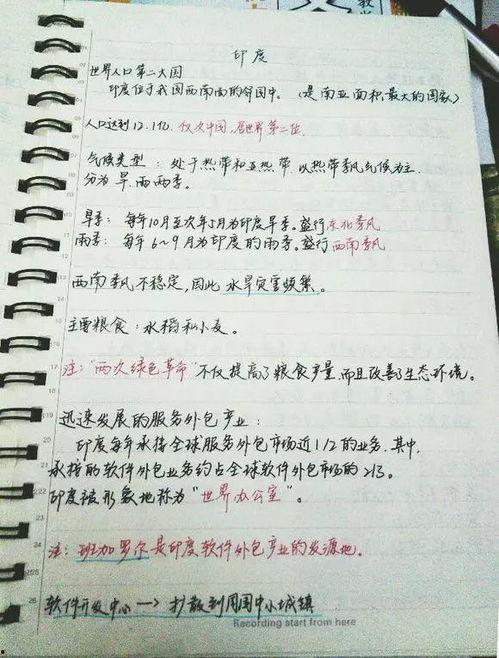 印度
世界人口第二大国
印度位于我国西南面的邻国中。（是南亚面积最大的国家）
人口达到12.1亿，仅次中国，居世界第二位。
气候类型：处于热带和亚热带，以热带季风气候为主.
分为旱、雨两季。
旱季：每年10月至次年5月为印度旱季。盛行东北季风
雨季：每年6~9月为印度的雨季。盛行西南季风
西南季风不稳定，因此水旱灾害频繁。
主要粮食：水稻和小麦。
注："两次绿色革命"不仅提高了粮食产量而且改善了生态环境。
迅速发展的服务外包产业：
印度每年承接全球服务外包市场近1/2的业务.其中.
承接的软件外包业务约占全球软件外包市场的2/3。
印度被形象地称为"世界办公室"。
注：班加罗尔是印度软件外包产业的发源地。
软件开发中心—>扩散到周围中小城镇
Recording start from here